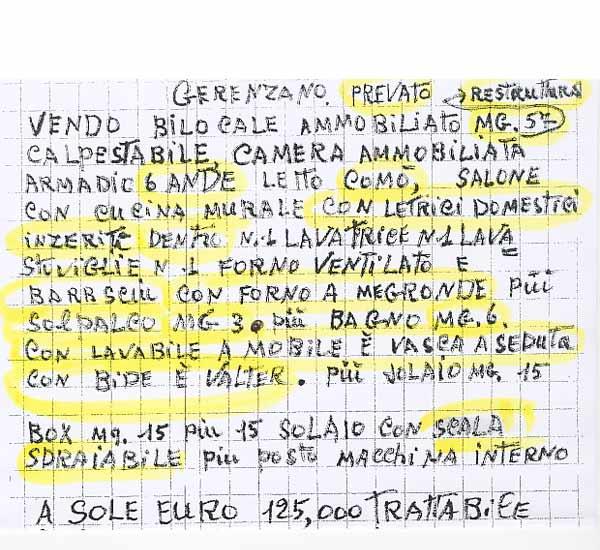 GERENZANO. PREVATO → RESTRUTTURA
VENDO BILOCALE AMMOBILIATO MG. 57
CALPESTABILE, CAMERA AMMOBILIATA
ARMADIO 6 ANDE LETTO COMÓ, SALONE
CON CUCINA MURALE CON LETRICI DOMESTICI
INZERITE DENTRO N.1 LAVATRICE N1 LAVA
STUVIGLIE N.1 FORNO VENTILATO E
BARRSCIU CON FORNO A MEGRONDE PIÙI
SOLPALCO MG 3. PIÙ BAGNO MG. 6.
CON LAVABILE A MOBILE È VASCA A SEDUTA
CON BIDE È VALTER. PIÙI SOLAIO MG. 15
BOX MQ. 15 PIU 15 SOLAIO CON SCALA
SDRAIABILE PIU POSTO MACCHINA INTERNO
A SOLE EURO 125,000 TRATTABILE